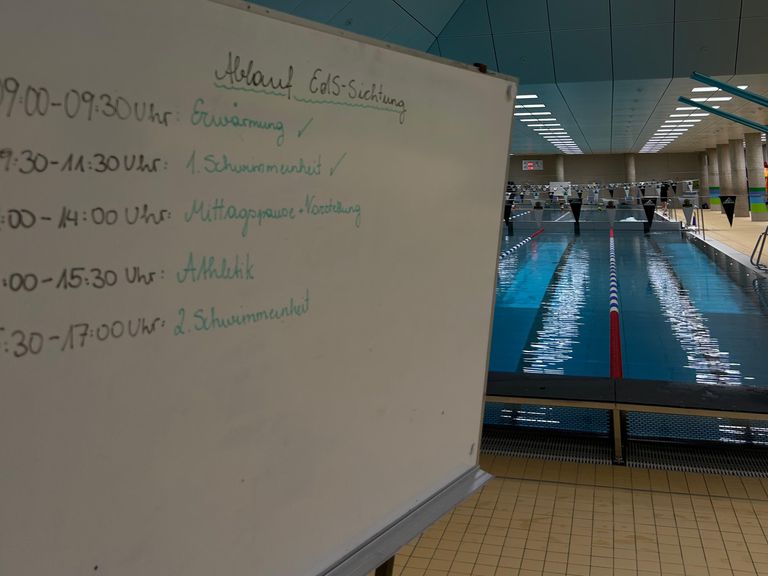 Ablauf EdS-Sichtung
09:00-09:30 Uhr: Erwärmung ✓
9:30-11:30 Uhr: 1. Schwimmeinheit ✓
:00-14:00 Uhr: Mittagspause + Vorstellung
:00-15:30 Uhr: Athletik
:30-17:00 Uhr: 2. Schwimmeinheit